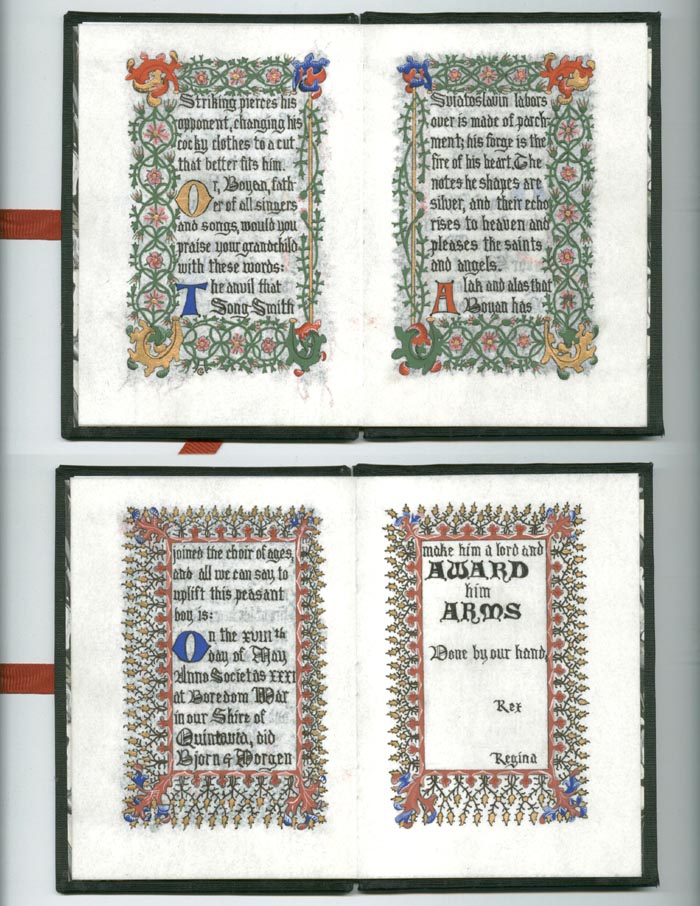 Striking pierces his
opponent, changing his
cocky clothes to a cut
that better fits him.
Or, Boyan, fath-
er of all singers
and songs, would you
praise your grandchild
with these words:
The anvil that
Song-Smith
Sviatoslavin labors
over is made of parch-
ment; his forge is the
fire of his heart. The
notes he shapes are
silver, and their echo
rises to heaven and
pleases the saints
and angels.
Alak and alas that
Boyan has
joined the choir of ages,
and all we can say to
uplift this peasant
boy is:
On the XVIIIth
day of May
Anno Societas XXXI
at Boredom War
in our Shire of
Quintavia, did
Bjorn & Morgen
make him a lord and
AWARD
him
ARMS
Done by our hand,
Rex
Regina